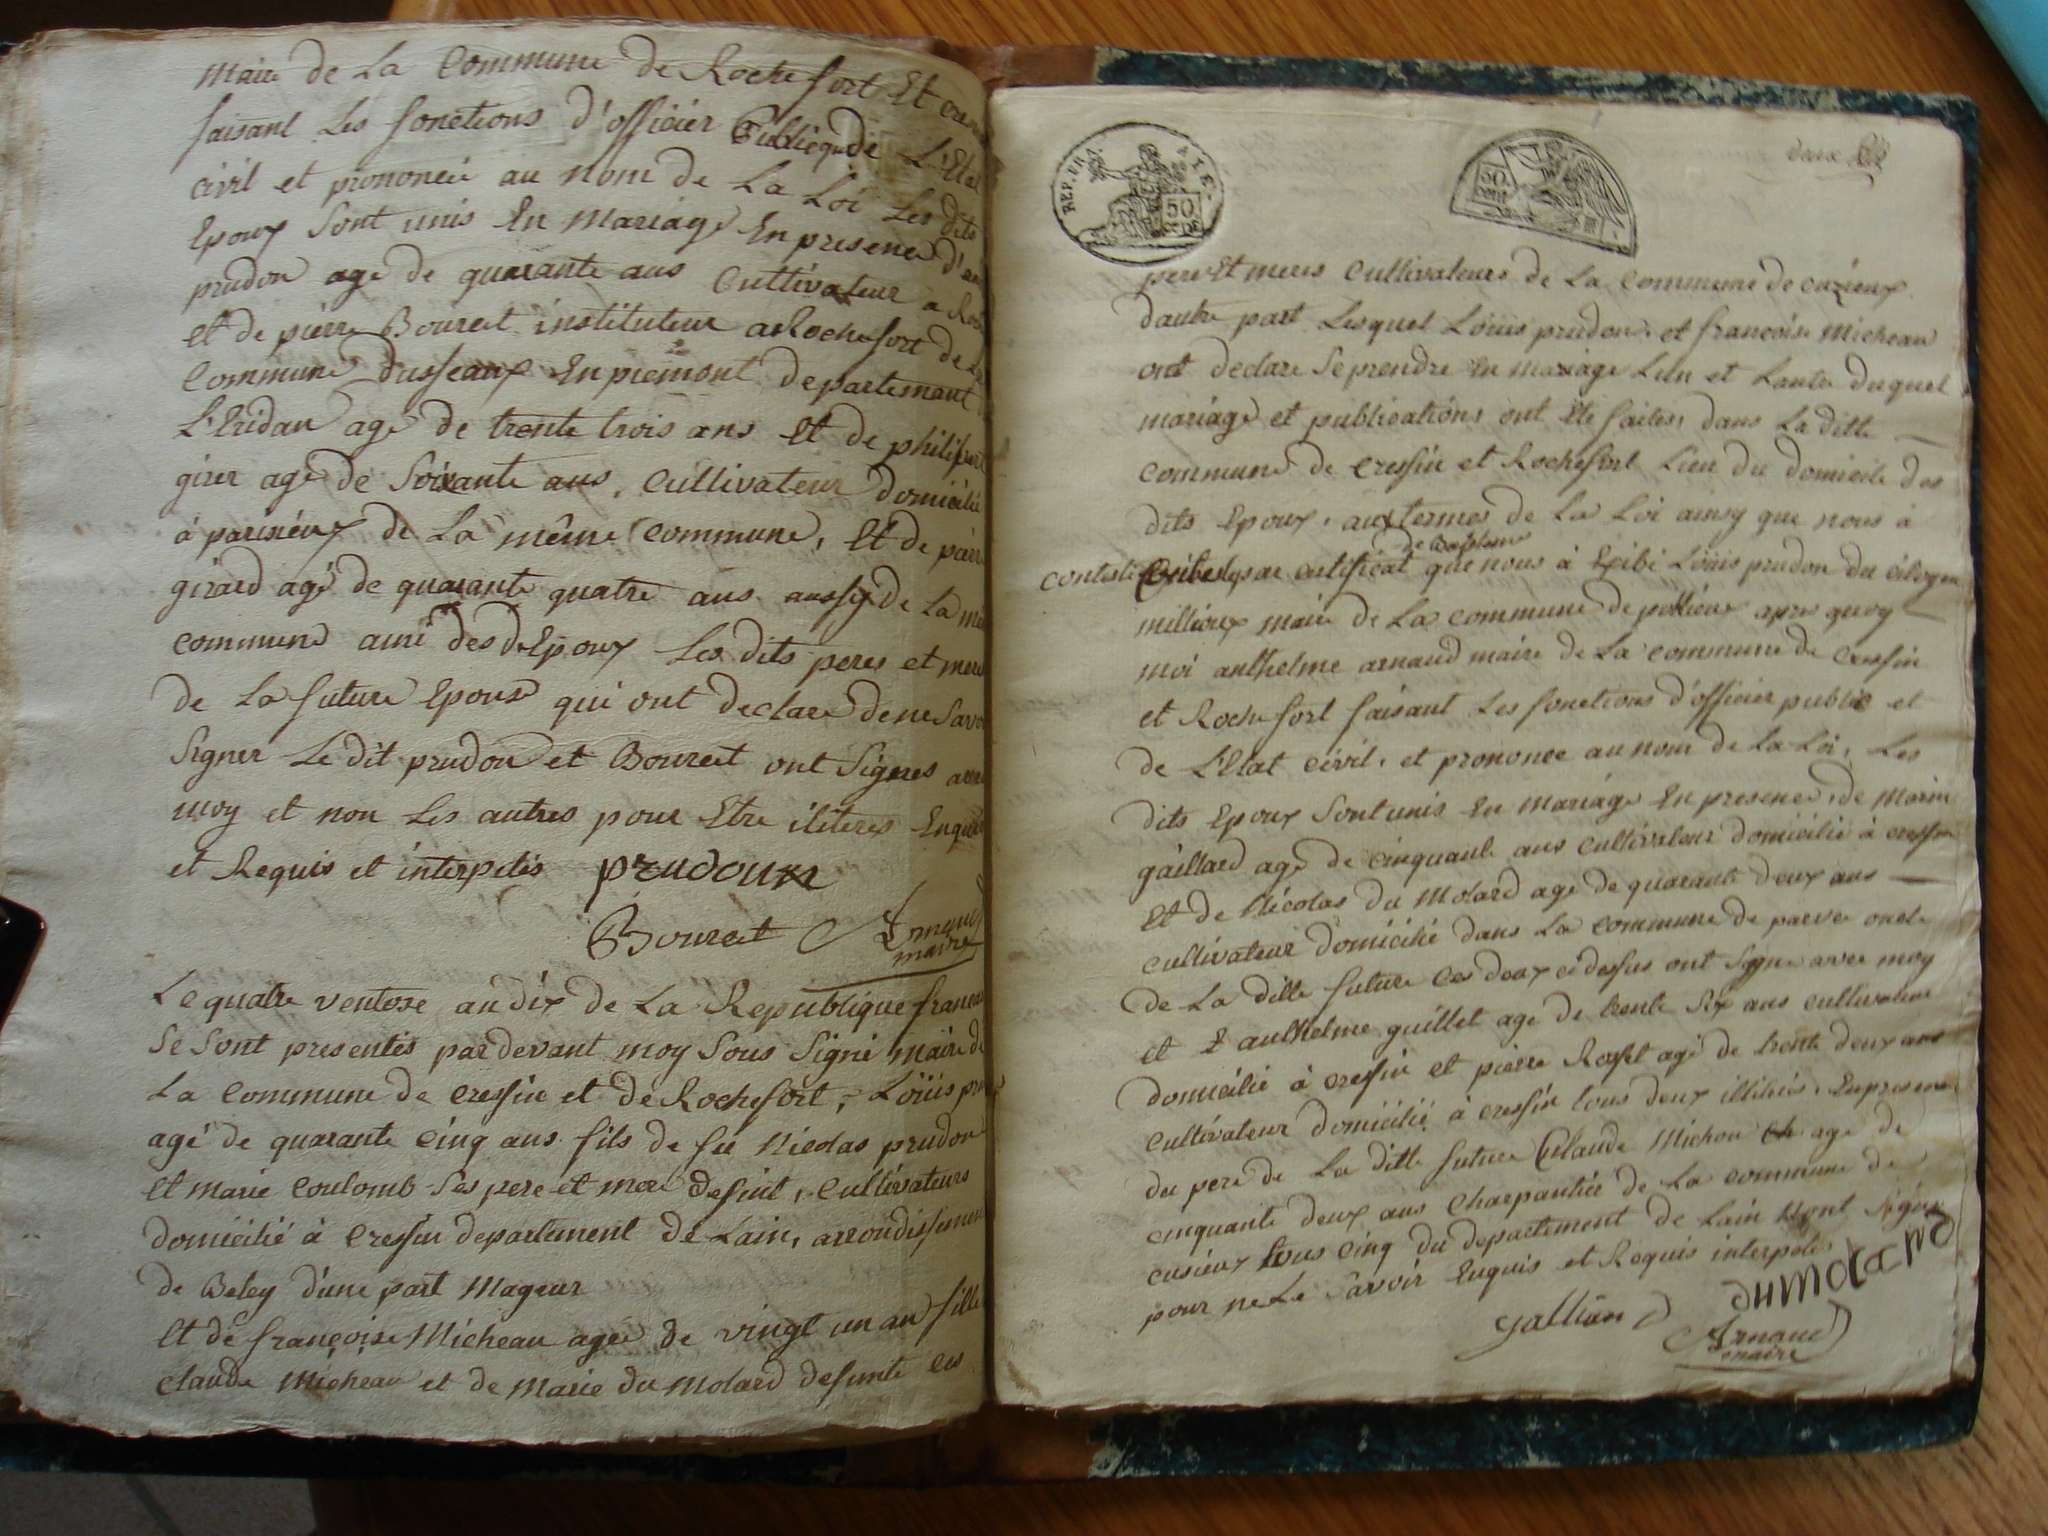 Maire de La Commune de Rochefort Et
faisant Les fonctions d'officier Publicq de L'Etat
civil et prononcée au nom de La Loi Les dits
Epoux Sont unis En Mariage En presence
prudon age de quarante ans Cultivateur a
et de pierre Bouret instituteur a Rochefort de
Commune En piemont departemant
L'Eridan agé de trente trois ans Et de
girer agé de Soixante ans, Cultivateur domicilié
à parisieux de La même Commune, Et de
girard agé de quarante quatre ans aussy de La
commune ami des d. Epoux Les dits peres et mere
de La future Epouse qui ont declare de ne
Signer Le dit prudon et Bouret ont Signés
moy et non Les autres pour Etre iliteres
et Requis et interpelés prudoun
Bouret Arnaud
maire
Le quatre ventose an dix de La Republique
Se Sont presentés par devant moy Sous Signé maire de
La Commune de Cressin et de Rochefort, Loüis
agé de quarante Cinq ans fils de feu Nicolas prudon
Et Marie Coulomb Ses pere et mere defunt, Cultivateurs
domicilié à Cressin departement de Lain, arrondissement
de Beley d'une part Mageur
Et de françoise Micheau agée de vingt un an fille
Claude Micheau et de Marie du Molard defunte
REP. FRA.
50
50
deux
pere Et meres Cultivateurs de La Commune de cuzieux
dautre part Lesquel Loüis prudon, et françoise Micheau
ont declare Se prendre En mariage Lun et Lautre duquel
mariage et publications ont Eté faites dans La ditte
Commune de Cressin et Rochefort Lieu du domicile des
dits Epoux, aux termes de La Loi ainsy que nous à
de Bapteme
par certificat que nous à Loüis prudon du citoyen
millioux maire de La Commune de pollieux apre quoy
moi anthelme arnaud maire de La commune de Cressin
et Rochefort faisant Les fonctions d'officier public et
de L'Etat civil, et prononce au nom de La Loi, Les
dits Epoux Sont unis En Mariage En presence, de Marin
gaillard agé de Cinquante ans Cultivateur domicilié à Cressin
Et de Nicolas du Molard age de quarante deux ans
cultivateur domicilié dans La Commune de parve oncle
de La ditte future Ces deux ci dessus ont Signe avec moy
et anthelme guillet age de trente Six ans cultivateur
domicilié à cressin et pierre Roset agé de trente deux ans
Cultivateur domicilié à cressin tous deux illitérés. En presence
du pere de La ditte future Claude Michou age de
cinquante deux ans Charpantier de La Commune de
cusieux tous Cinq du departement de Lain Signe
pour ne Le Savoir Enquis et Requis interpele
gallian dumolard
Arnaud
maire